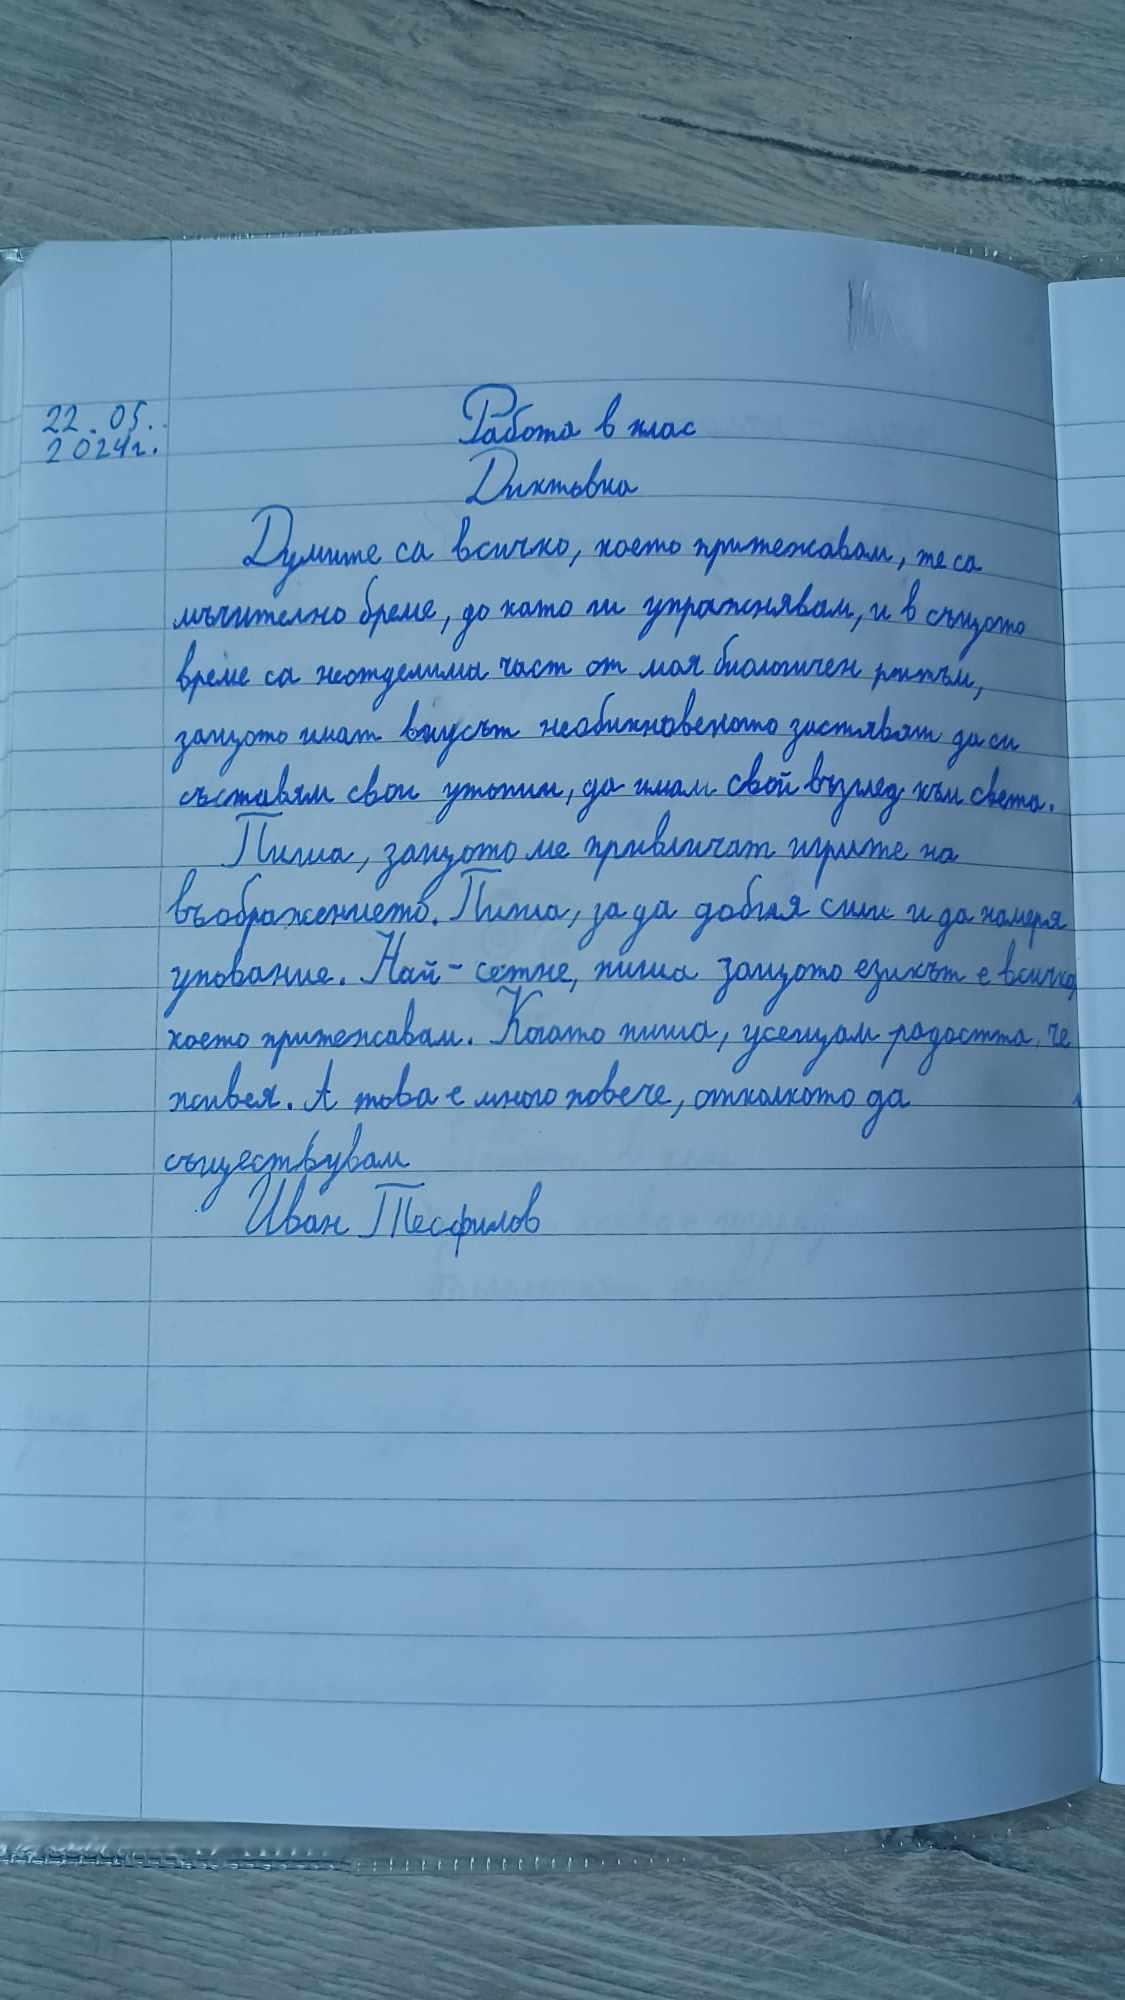 22.05.
2024г.
Работа в клас
Диктовка
Думите са всичко, което притежавам, те са
мъчително бреме, до като ги упражнявам, и в същото
време са неотделима част от моя биологичен ритъм,
защото имат вкусът необикновеното заставям да си
съставям свои утопии, да имам свой възглед към света.
Пиша, защото ме привличат игрите на
въображението. Пиша, за да добия сили и да намеря
упование. Най-сетне, пиша защото езикът е всичко,
което притежавам. Когато пиша, усещам радостта, че
живея. А това е много повече, отколкото да
съществувам
Иван Теофилов